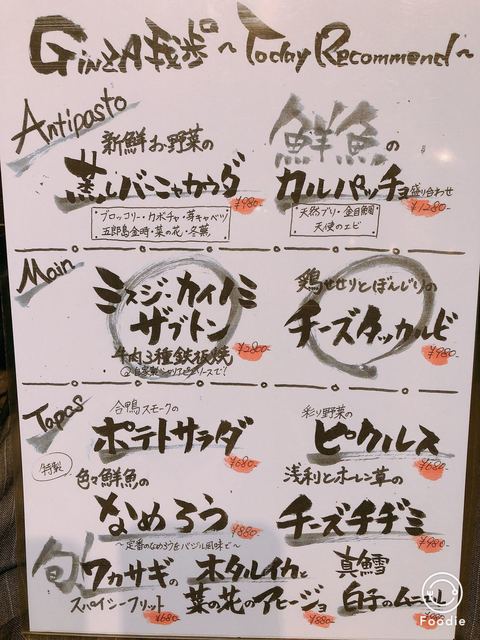 GinzA 我歩 ~ Today Recommend ~
Antipasto
新鮮お野菜の
蒸しバーニャカウダ
¥980-
ブロッコリー・カボチャ・芽キャベツ
五郎島金時・菜の花・冬葱
鮮魚の
カルパッチョ盛り合わせ
¥1280-
天然ブリ・金目鯛
天使のエビ
Main
ミスジ・カイノミ
ザブトン
牛肉3種鉄板焼
¥2800-
鶏せせりとぼんじりの
チーズタッカルビ
¥980-
Tapas
合鴨スモークの
ポテトサラダ
¥680-
彩り野菜の
ピクルス
¥680-
特製
色々鮮魚の
なめろう
¥880-
〜定番のなめろうをバジル風味で〜
浅利とホーレン草の
チーズチヂミ
¥980-
旬
ワカサギの
スパイシーフリット
¥680-
ホタルイカと
菜の花のアヒージョ
¥880-
真鱈
白子のムニエル
Foodie